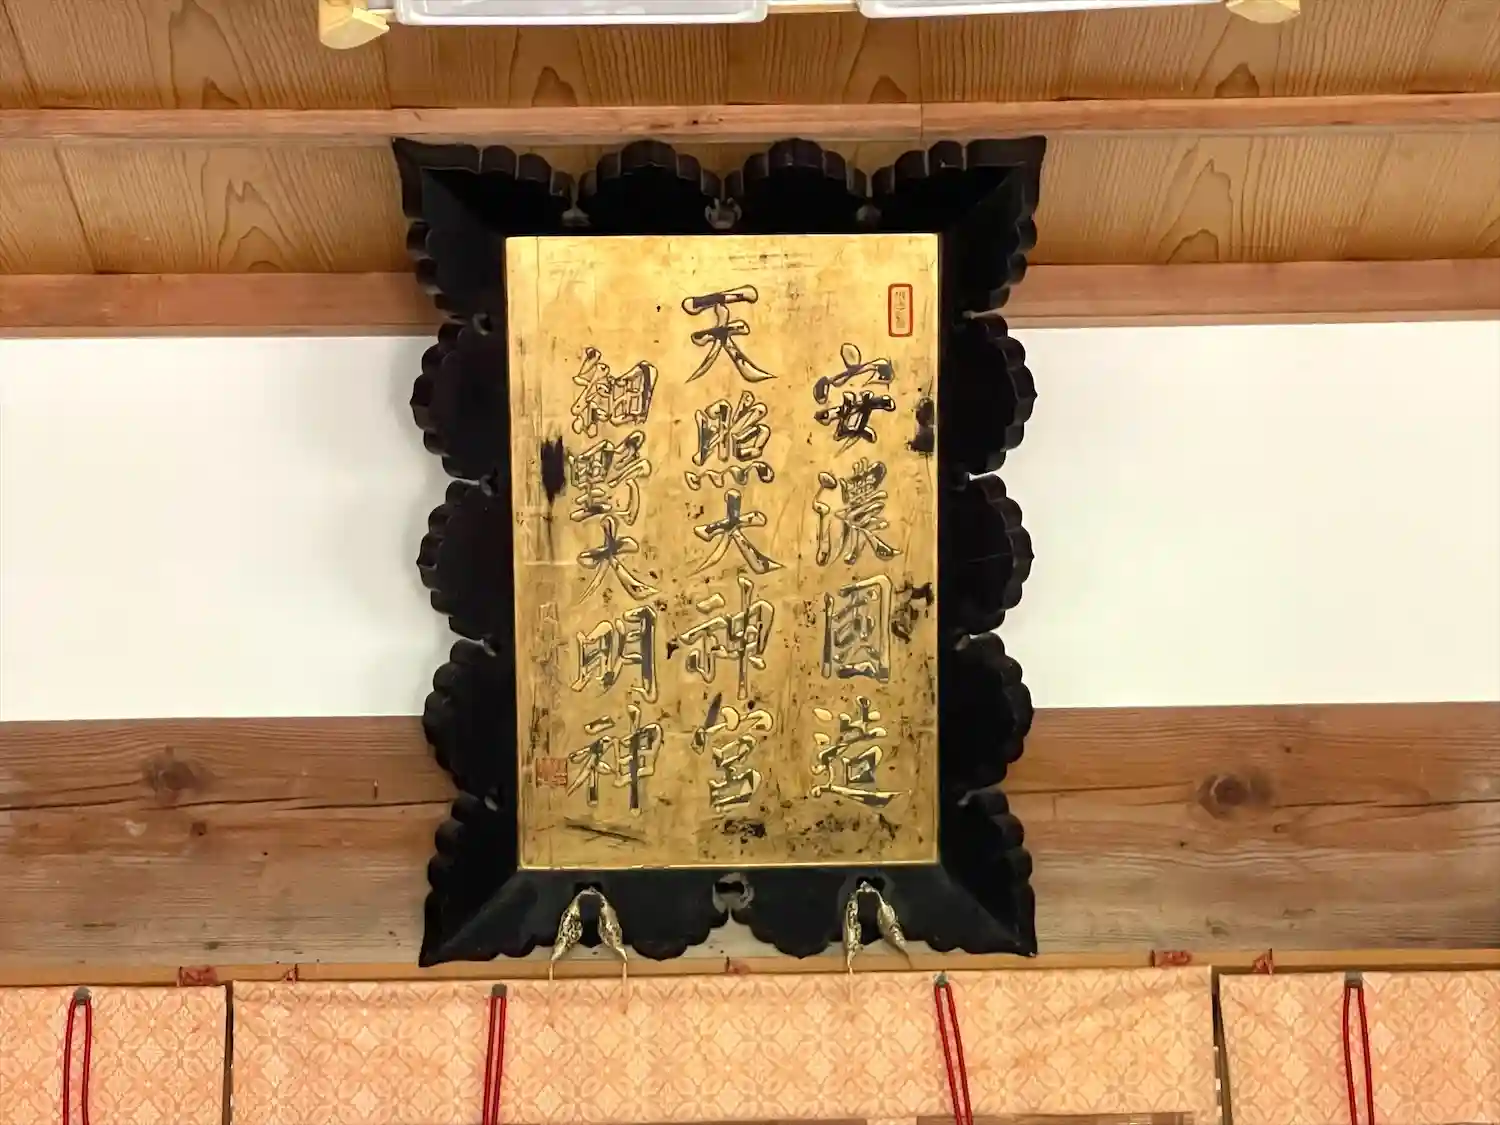 安濃國造
天照大神宮
細野大明神